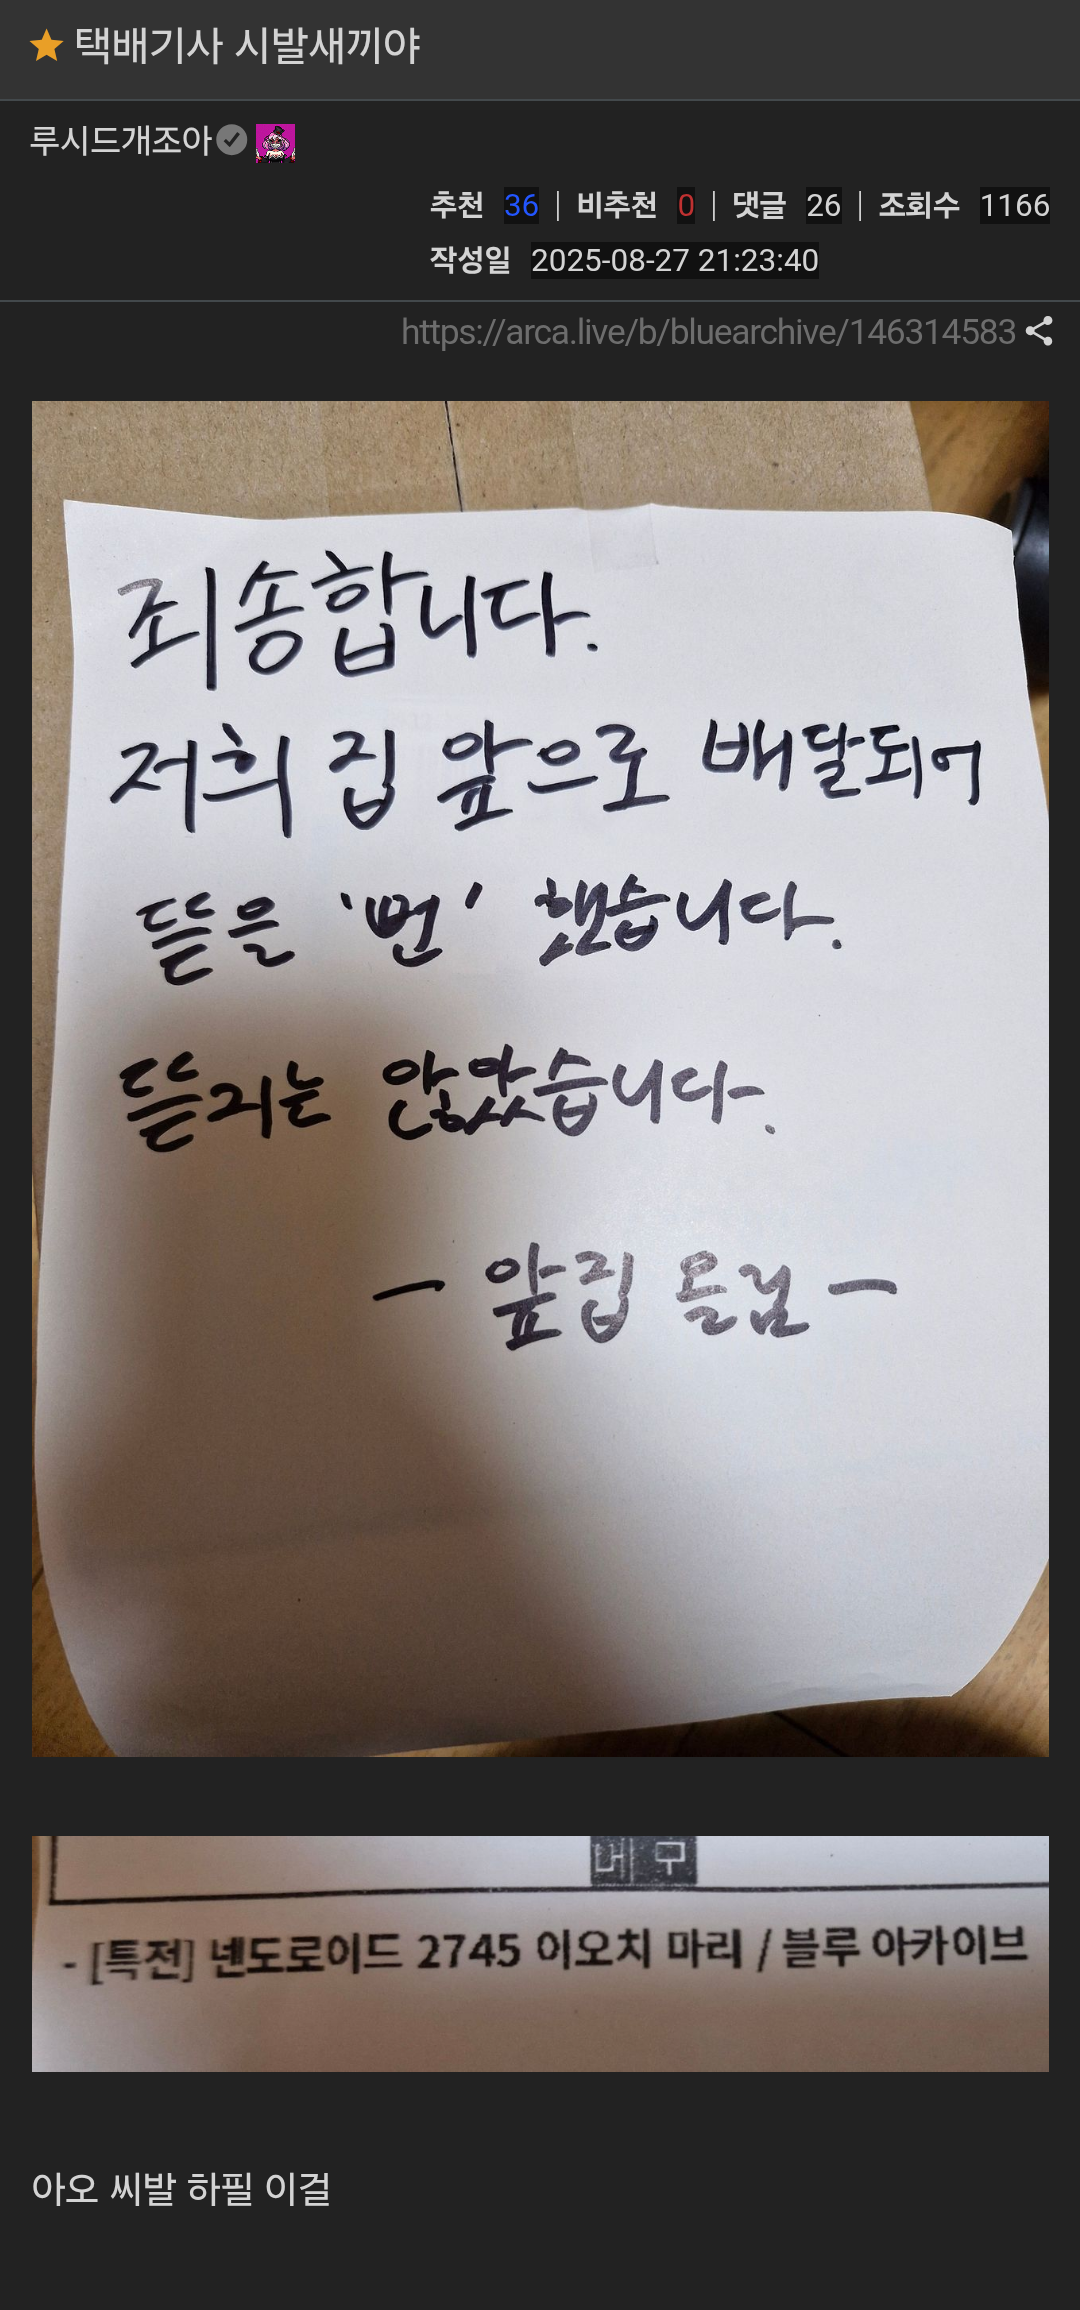 택배기사 시발새끼야
루시드개조아
추천 36 | 비추천 0 | 댓글 26 | 조회수 1166
작성일 2025-08-27 21:23:40
https://arca.live/b/bluearchive/146314583
죄송합니다.
저희 집 앞으로 배달되어
뜯을 '뻔' 했습니다.
뜯지는 않았습니다.
- 앞집 올림 -
내 구
- [특전] 넨도로이드 2745 이오치 마리 / 블루 아카이브
아오 씨발 하필 이걸